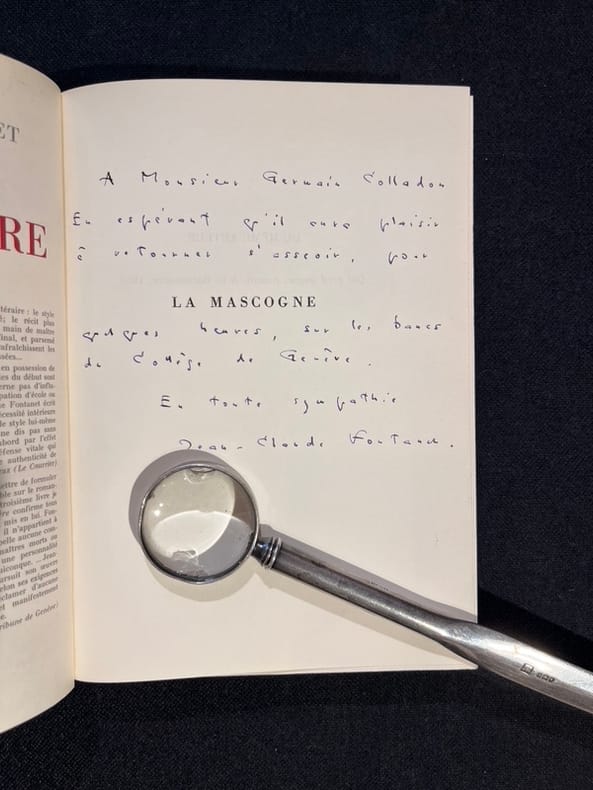 ET
RE
ttéraire : le style
é; le récit plus
main de maître
final, et parsemé
rafraîchissent les
sées...
en possession de
les du début sont
erne pas d'influ-
pation d'école ou
e Fontanet écrit
écessité intérieure
de style lui-même
ne dis pas sans
abord par l'effet
éfense vitale qui
e authenticité de
raz (Le Courrier)
ettre de formuler
ble sur le roman-
troisième livre je
ère confirme tous
mis en lui. Fon-
il n'appartient à
pelle aucune con-
maîtres morts ou
une personnalité
uiconque. ... Jean-
ursuit son œuvre
elon ses exigences
clamer d'aucune
et manifestement
e.
ribune de Genève)
A Monsieur Germain Colladon
En espérant qu'il aura plaisir
à retourner s'asseoir, pour
LA MASCOGNE
quelques heures, sur les bancs
du Collège de Genève.
En toute sympathie
Jean-Claude Fontanet.